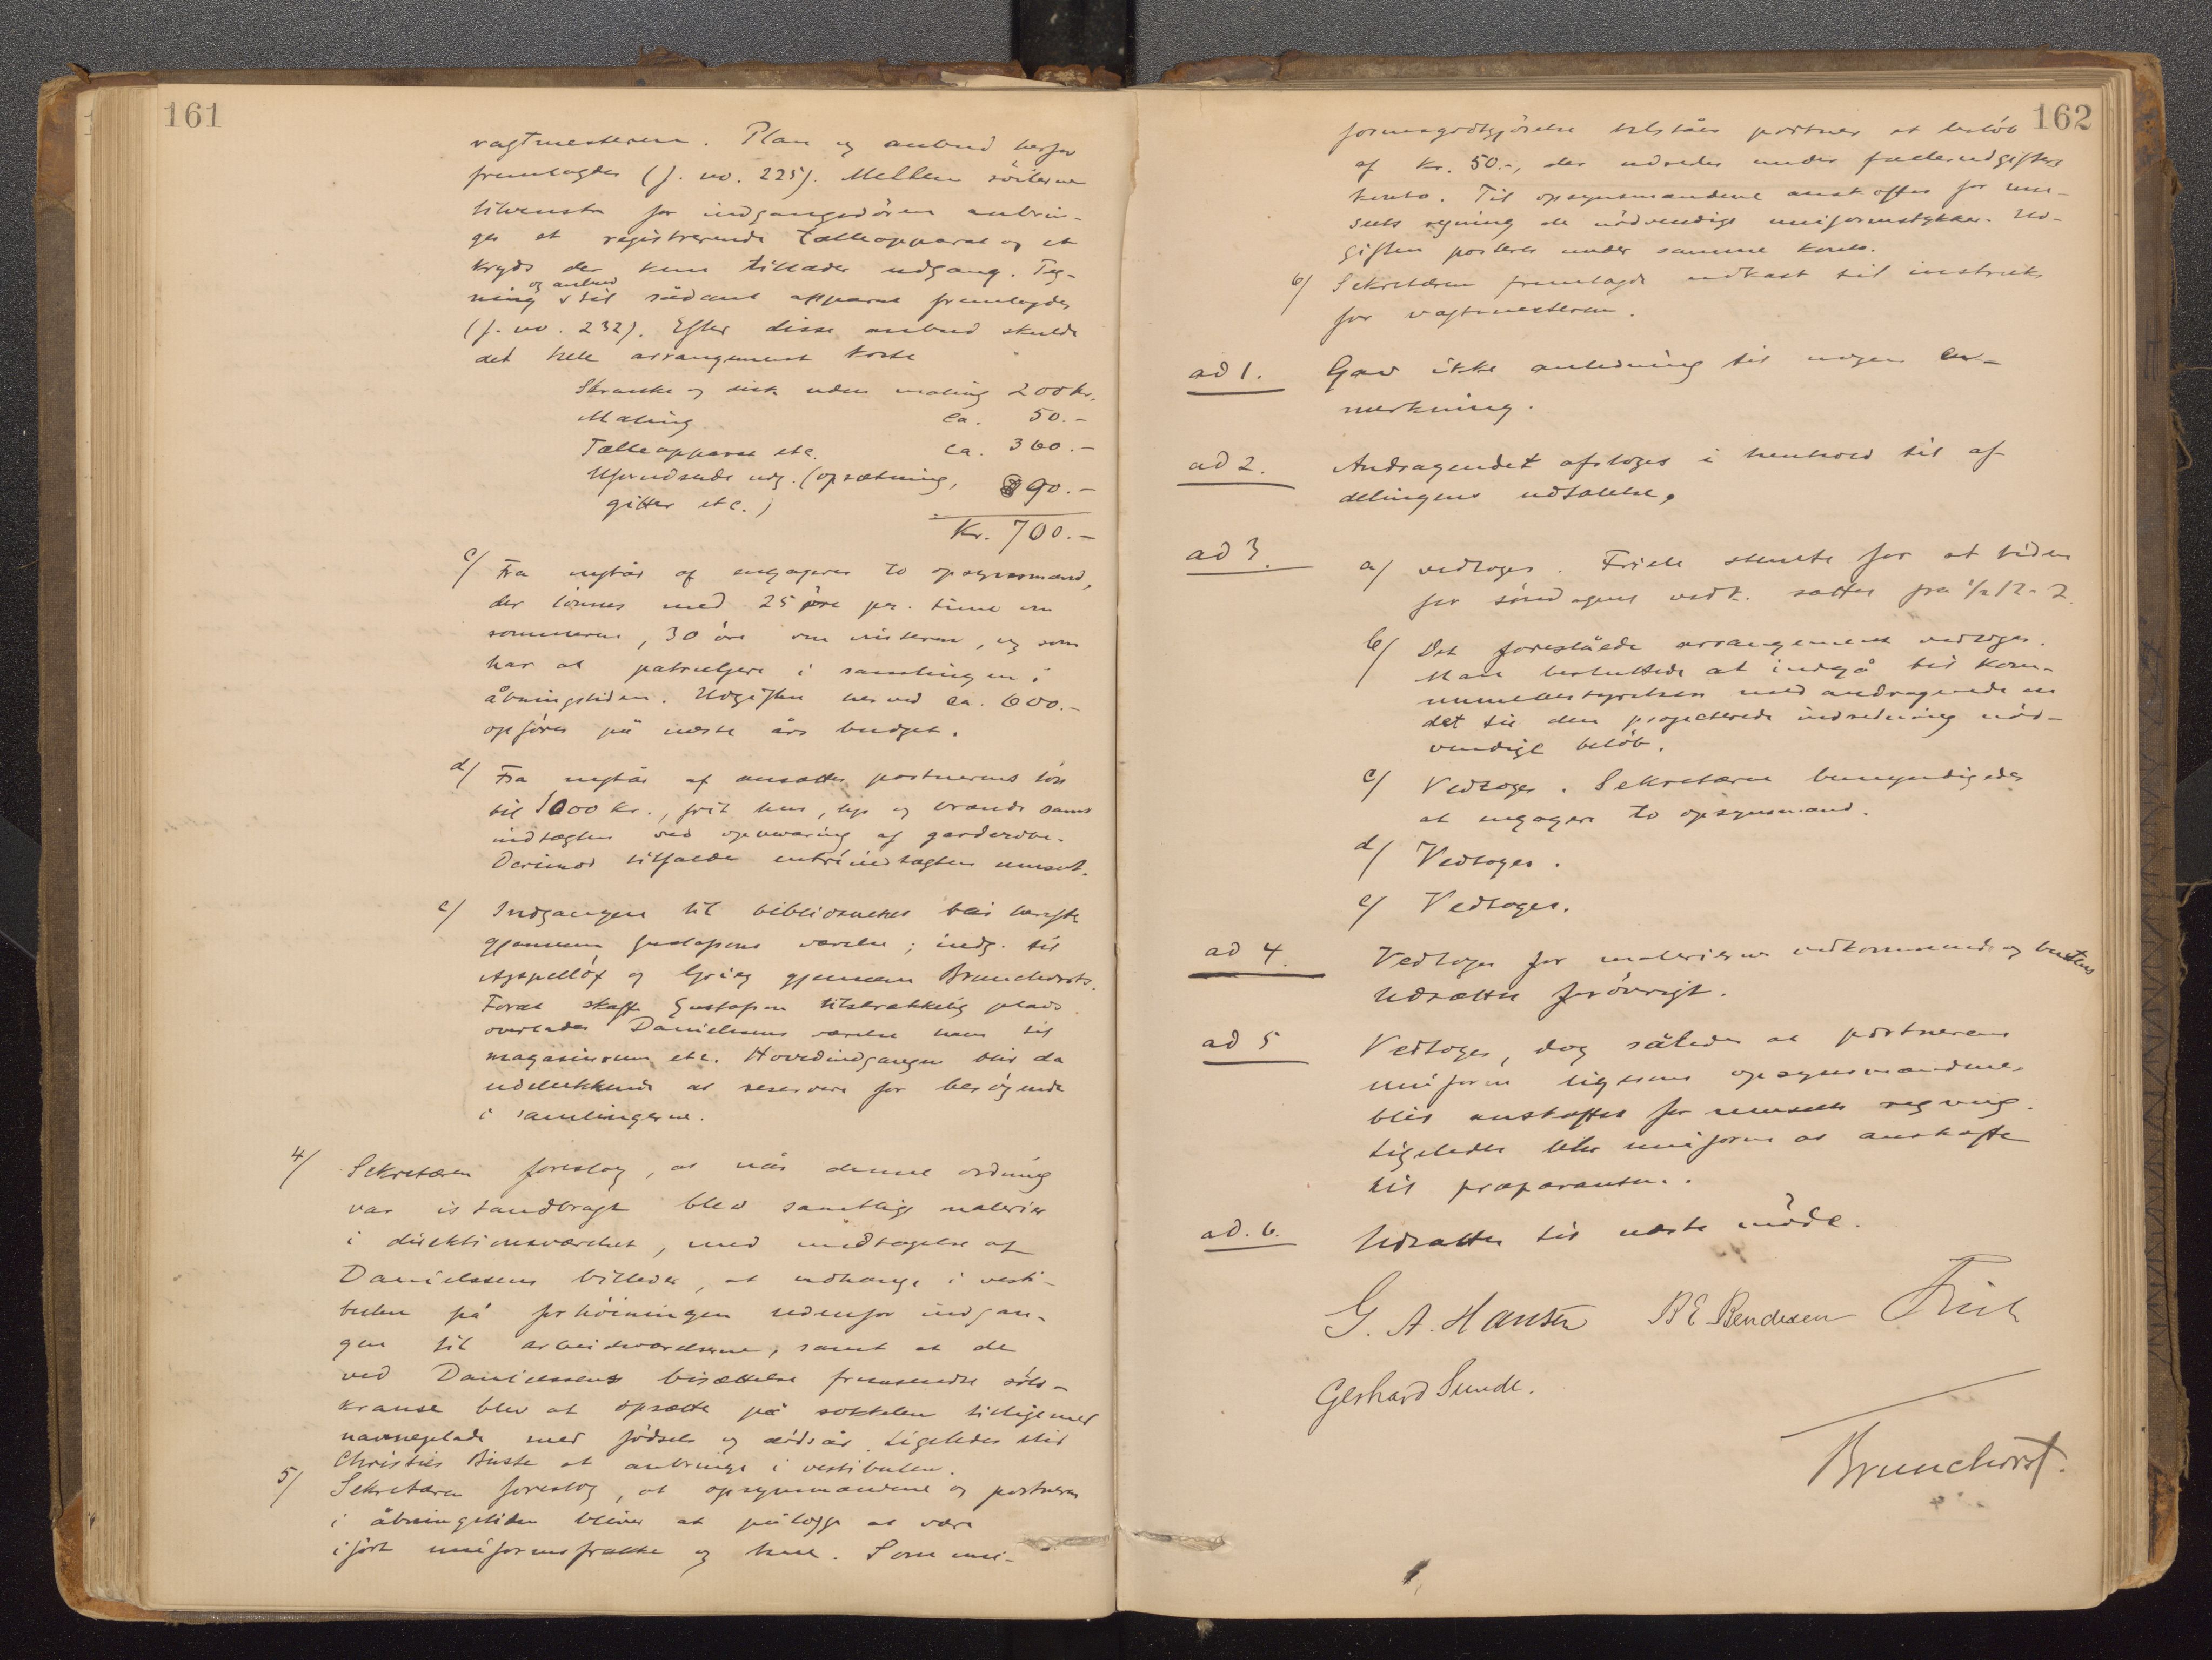 161
vagtmesteren. Plan og anbud herfor
fremlagdes (j. no. 225). Mellem söilerne
tilvenstre for indgangsdören anbrin-
ges et registrerende tælleapparat og et
kryds der kun tillader udgang. Teg-
ning og anbud til sådant apparat fremlagdes
(j. no. 232). Efter disse anbud skulde
det hele arrangement koste
Skranke og disk uden maling 200 kr.
Maling ca. 50.-
Tælleapparat etc. ca. 360.-
Uforudsede udg. (opsætning, 90.-
gitter etc.)
Kr. 700.-
c/ Fra nytår af engageres to opsynsmænd,
der lönnes med 25 öre pr. time om
sommeren, 30 öre om vinteren, og som
har at patruljere i samlingen i
åbningstiden. Udgiften herved ca. 600.-
opföres på næste års budget.
d/ Fra nytår af ansættes portnerens lön
til 1000 kr., frit hus, lys og brænde samt
indtægten ved opbevaring af garderobe.
Derimod tilfalder entréindtægten museet.
e/ Indgangen til bibliotheket blir herefter
gjennem Gustafsons værelse; indg. til
Appellöf og Grieg gjennem Brunchorsts.
Forat skaffe Gustafson tilstrækkelig plads
overlades Danielssens værelse ham til
magasinrum etc. Hovedindgangen blir da
udelukkende at reservere for besögende
i samlingerne.
4/ Sekretæren foreslog, at når denne ordning
var istandbragt blev samtlige malerier
i direktionsværelset, med undtagelse af
Danielssens billeder, at udhænge i vesti-
bulen på forhöiningen udenfor indgan-
gen til arbeidsværelserne, samt at de
ved Danielssens bisættelse fremsendte sölv-
kranse blev at opsætte på sokkelen tilligemed
navneplade med födsels og dödsår. Ligeledes blir
Christies Büste at anbringe i vestibulen.
5/ Sekretæren foreslog, at opsynsmændene og portneren
i åbningstiden bliver at pålægge at være
iført uniformsfrakke og hue. Som uni-
162
formsgodtgjörelse tilståes portner et belöb
af Kr. 50.-, der udredes under fællesudgifters
konto. Til opsynsmændene anskaffes for mu-
seets regning de nödvendige uniformstykker. Ud-
giften posteres under samme konto.
6/ Sekretæren fremlagde udkast til instruks
for vagtmesteren.
ad 1. Gav ikke anledning til nogen be-
merkning.
ad 2. Andragendet afsloges i henhold til af-
delingens udtalelse.
ad 3. a/ vedtoges. Friele stemte for at tiden
for söndagens vedk. sattes fra 1/2 12 - 2.
b/ Det foreslåede arrangement vedtoges.
Man besluttede at indgå til kom-
munebestyrelsen med andragende om
det til den projecterede indredning nöd-
vendige belöb.
c/ Vedtoges. Sekretæren bemyndigedes
at engagere to opsynsmænd.
d/ Vedtoges.
e/ Vedtoges.
ad 4. Vedtoges for malerierne vedkommende og büstens
Udsættes forövrigt.
ad 5 Vedtoges, dog således at portnerens
uniform ligesom opsynsmændenes
blir anskaffet for museets regning.
Ligeledes blir uniform at anskaffe
til præparanten.
ad. 6. Udsattes til næste möde.
G. A. Hansen B E Bendixen Friele
Gerhard Sunde.
Brunchorst.